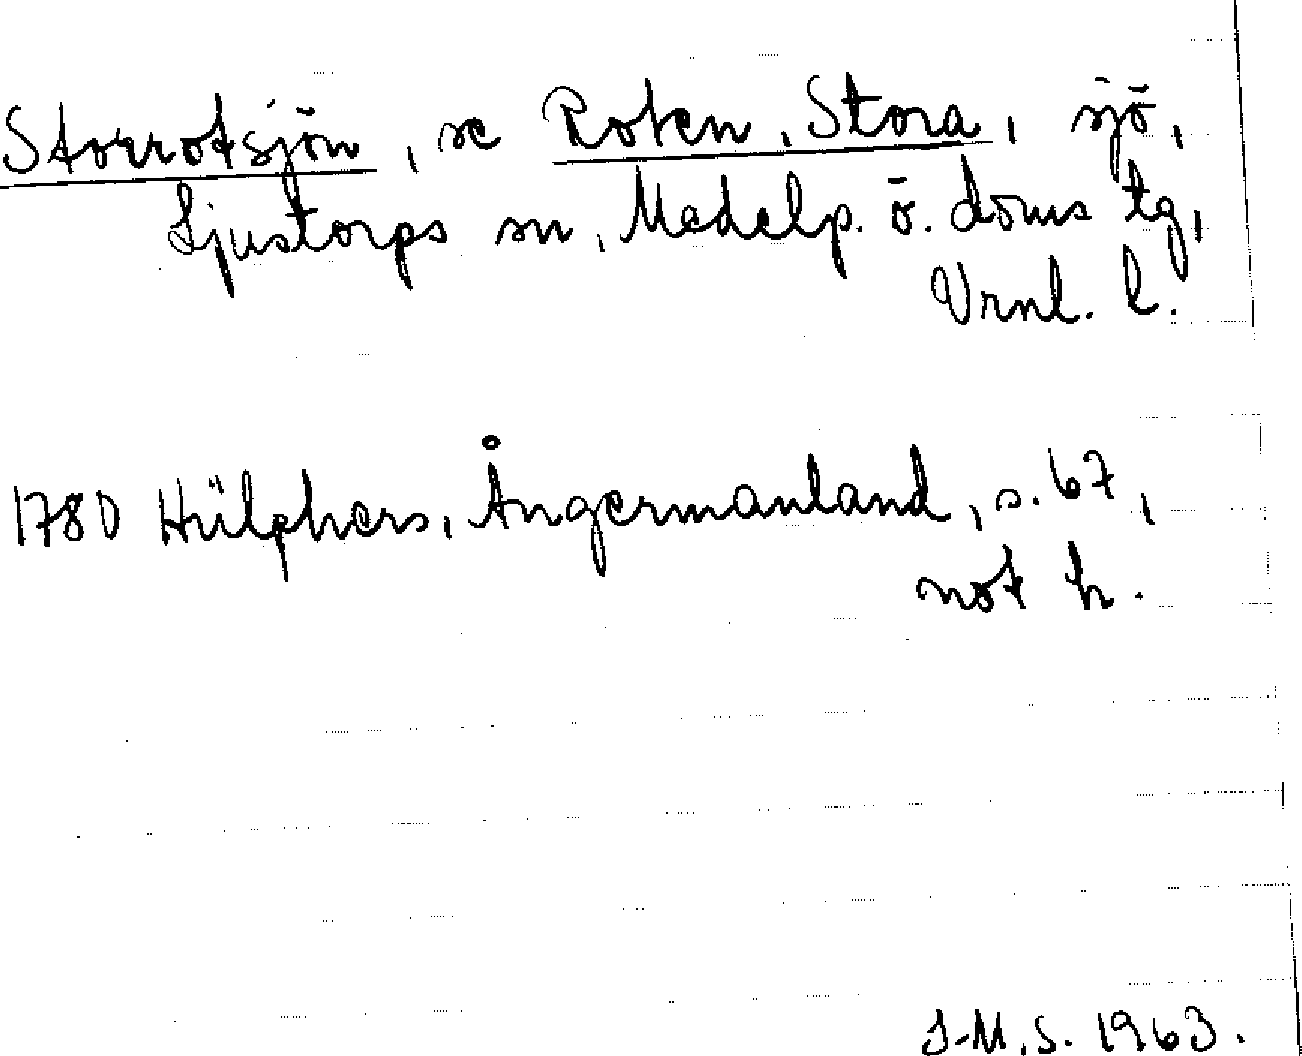 Storrotsjön, se Roten, Stora, sjö,
Ljustorps sn, Medelp. ö. doms tg,
Vrnl. l.
1780 Hülphers, Ångermanland, s. 67,
not h.
J-M.S. 1963.